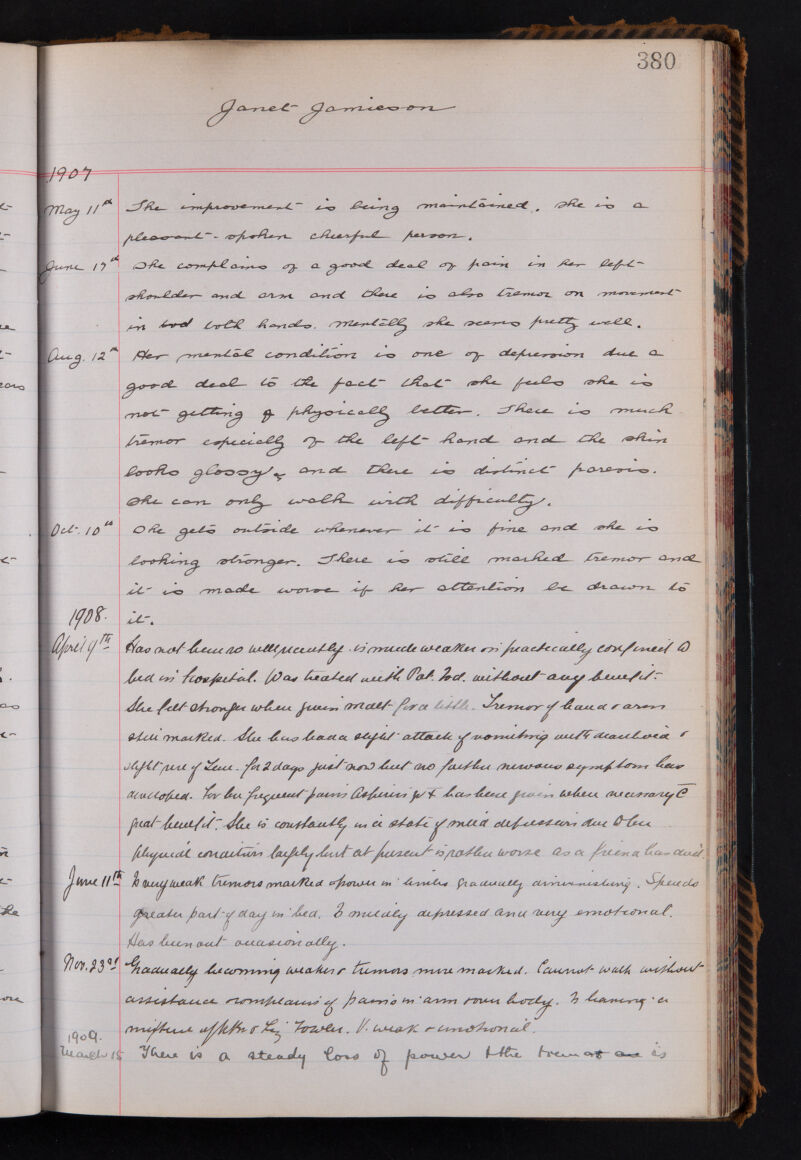 380
Janet Jamieson
1907
May 11th The improvement is being maintained. She is a
pleasant-spoken cheerful person.
June 17th She complains of a good deal of pain in her left
shoulder and arm and there is also tremor on movement
in bod both hands. Mentally she seems pretty well.
Aug. 12th Her mental condition is one of depression due a
good deal to the fact that she feels she is
not getting physically better. There is much
tremor especially of the left hand and the skin
looks glossy, and there is distinct paresis.
She can only walk with difficulty.
Oct. 10th She gets outside whenever it is fine and she is
looking stronger. There is still marked tremor and
it is made worse if her attention be drawn to
it.
1908.
April 9th Has not been so well recently. is much weaker & is practically confined to
bed in hospital. Was treated with Pot. Iod. without any benefit.
She felt stronger when given malt for a little. Tremor of hand & arm
still marked. She has had a slight attack of vomiting with diarrhoea &
slight rise of Tem. for 2 days just now but no further nervous symptom has
developed. For her frequent pains Aspirin gr X has been given when necessary c̄
great benefit. She is constantly in a state of mild depression due to her
physical condition largely but at present is rather worse as a friend has died.
June 11th Is very weak tremors marked & power in limbs gradually diminishing. Spends
greater part of day in bed. Is mildly depressed and very emotional.
Has been out occasionally.
Nov. 23rd Gradually becoming weaker & tremors more marked. Cannot walk without
assistance & complains of pains in arm & over body. Is having a
mixture of & Liq Fowler. V. weak & emotional.
1909.
March 15 There is a steady loss of power & the tremor is